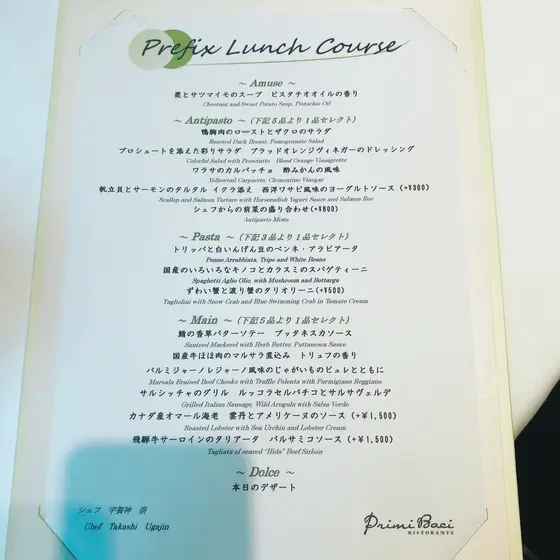 Prefix Lunch Course
～ Amuse ～
栗とサツマイモのスープ ピスタチオオイルの香り
Chestnut and Sweet Potato Soup, Pistachio Oil
～ Antipasto ～（下記５品より１品セレクト）
鴨胸肉のローストとザクロのサラダ
Roasted Duck Breast, Pomegranate Salad
プロシュートを添えた彩りサラダ ブラッドオレンジヴィネガーのドレッシング
Colorful Salad with Prosciutto Blood Orange Vinaigrette
ワラサのカルパッチョ 酢みかんの風味
Yellowtail Carpaccio, Clementine Vinegar
帆立貝とサーモンのタルタル イクラ添え 西洋ワサビ風味のヨーグルトソース (+¥300)
Scallop and Salmon Tartare with Horseradish Yogurt Sauce and Salmon Roe
シェフからの前菜の盛り合わせ(+¥800)
Antipasto Misto
～ Pasta ～（下記３品より１品セレクト）
トリッパと白いんげん豆のペンネ・アラビアータ
Penne Arrabbiata, Tripe and White Beans
国産のいろいろなキノコとカラスミのスパゲティーニ
Spaghetti Aglio Olio, with Mushroom and Bottarga
ずわい蟹と渡り蟹のタリオリーニ(+¥500)
Tagliolini with Snow Crab and Blue Swimming Crab in Tomato Cream
～ Main ～（下記５品より１品セレクト）
鯖の香草バターソテー プッタネスカソース
Sauteed Mackerel with Herb Butter, Puttanesca Sauce
国産牛ほほ肉のマルサラ煮込み トリュフの香り
パルミジャーノレジャーノ風味のじゃがいものピュレとともに
Marsala Braised Beef Cheeks with Truffle Polenta with Parmigiano Reggiano
サルシッチャのグリル ルッコラセルバチコとサルサヴェルデ
Grilled Italian Sausage, Wild Arugula with Salsa Verde
カナダ産オマール海老 雲丹とアメリケーヌのソース (+¥1,500)
Roasted Lobster with Sea Urchin and Lobster Cream
飛騨牛サーロインのタリアータ バルサミコソース (+¥1,500)
Tagliata of seared "Hida" Beef Sirloin
～ Dolce ～
本日のデザート
シェフ 宇賀神 崇
Chef Takashi Ugajin
Primi Baci
RISTORANTE